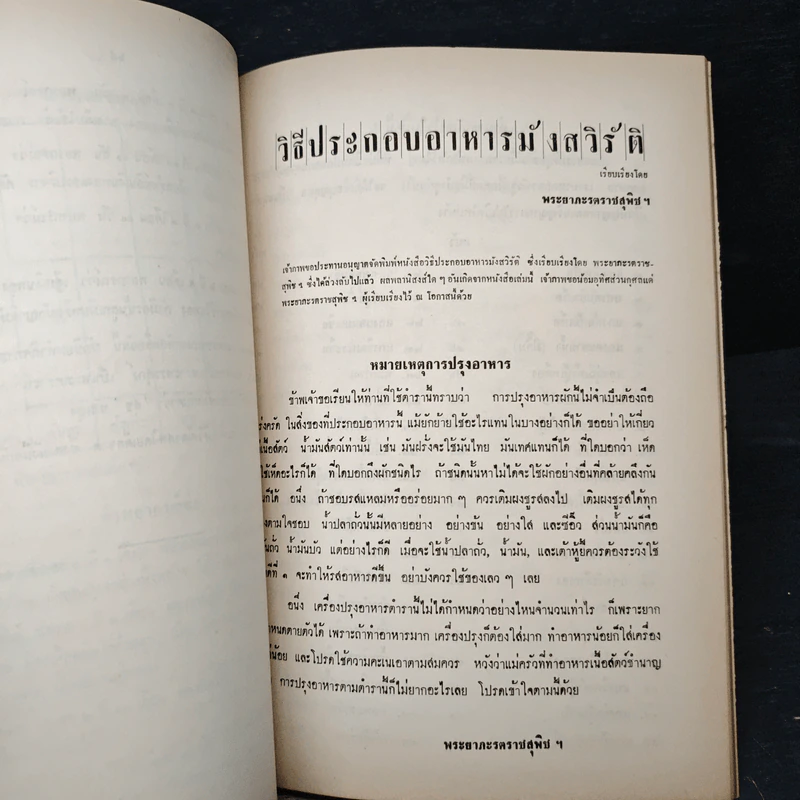 วิธีประกอบอาหารมังสวิรัติ
เรียบเรียงโดย
พระยาภะรตราชสุพิช ฯ
เจ้าภาพขอประทานอนุญาตจัดพิมพ์หนังสือวิธีประกอบอาหารมังสวิรัติ ซึ่งเรียบเรียงโดย พระยาภะรตราช-
สุพิช ฯ ซึ่งได้ล่วงลับไปแล้ว ผลพลานิสงส์ใด ๆ อันเกิดจากหนังสือเล่มนี้ เจ้าภาพขอน้อมอุทิศส่วนกุศลแด่
พระยาภะรตราชสุพิช ฯ ผู้เรียบเรียงไว้ ณ โอกาสนี้ด้วย
หมายเหตุการปรุงอาหาร
ข้าพเจ้าขอเรียนให้ท่านที่ใช้ตำรานี้ทราบว่า การปรุงอาหารผักนี้ไม่จำเป็นต้องถือ
ร่งครัด ในสิ่งของที่ประกอบอาหารนี้ แม้ยักย้ายใช้อะไรแทนในบางอย่างก็ได้ ขออย่าให้เกี่ยว
เนื้อสัตว์ น้ำมันสัตว์เท่านั้น เช่น มันฝรั่งจะใช้มันไทย มันเทศแทนก็ได้ ที่ใดบอกว่า เห็ด
ใช้เห็ดอะไรก็ได้ ที่ใดบอกถึงผักชนิดไร ถ้าชนิดนั้นหาไม่ได้จะใช้ผักอย่างอื่นที่คล้ายคลึงกัน
นก็ได้ อนึ่ง ถ้าชอบรสแหลมหรืออร่อยมาก ๆ ควรเติมผงชูรสลงไป เติมผงชูรสได้ทุก
งตามใจชอบ น้ำปลาถั่วนั้นมีหลายอย่าง อย่างข้น อย่างใส และซีอิ๊ว ส่วนน้ำมันก็คือ
ันถั่ว น้ำมันบัว แต่อย่างไรก็ดี เมื่อจะใช้น้ำปลาถั่ว, น้ำมัน, และเต้าหู้ยี้ควรต้องระวังใช้
ดีที่ ๑ จะทำให้รสอาหารดีขึ้น อย่าบังควรใช้ของเลว ๆ เลย
อนึ่ง เครื่องปรุงอาหารตำรานี้ไม่ได้กำหนดว่าอย่างไหนจำนวนเท่าไร ก็เพราะยาก
ำหนดตายตัวได้ เพราะถ้าทำอาหารมาก เครื่องปรุงก็ต้องใส่มาก ทำอาหารน้อยก็ใส่เครื่อง
น้อย และโปรดใช้ความคะเนเอาตามสมควร หวังว่าแม่ครัวที่ทำอาหารเนื้อสัตว์ชำนาญ
การปรุงอาหารตามตำรานี้ก็ไม่ยากอะไรเลย โปรดเข้าใจตามนี้ด้วย
พระยาภะรตราชสุพิช ฯ